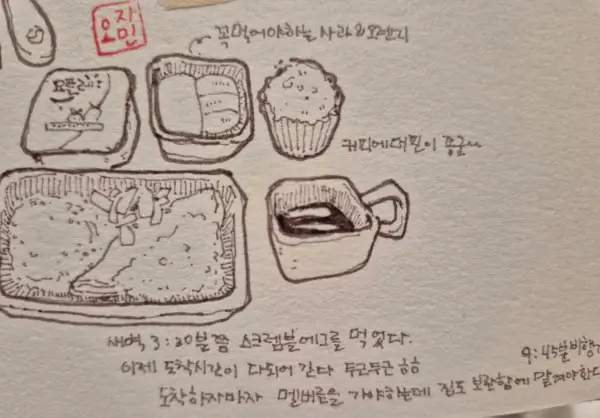 오자민
꼭먹어야하는 사과오렌지
요플레
커피에 대편이 흥군~
새벽 3:20분쯤 스크램블에그를 먹었다.
이제 도착시간이 다되어 간다 두근두근 ㅎㅎ
9:45분비행기
도착하자마자 멜버른을 가야하는데 짐도 보관함에 맡겨야한다